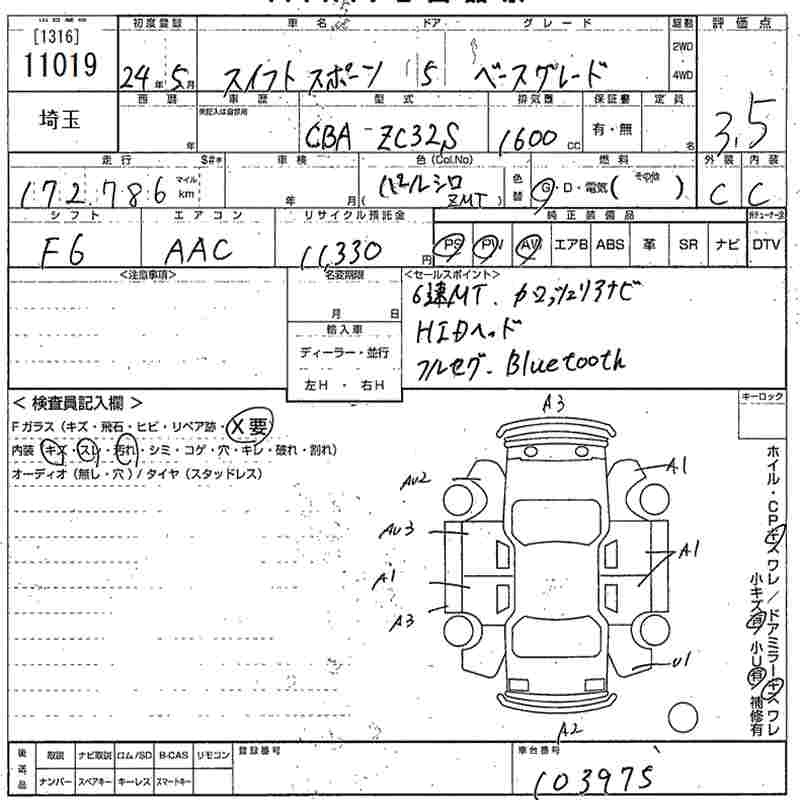 [1316]
11019
埼玉
初度登録
24年5月
車名
スイフトスポーツ
ドア
5
グレード
ベースグレード
駆動
2WD
4WD
評価点
3.5
西暦
年
車歴
型式
CBA-ZC32S
排気量
1600cc
保証書
有・無
定員
名
走行
172,786
マイル
km
S#*
車検
年 月
色(Col.No)
パールシロ
ZMT
色替
燃料
G・D・電気(その他)
外装
C
内装
C
シフト
F6
エアコン
AAC
リサイクル預託金
11,330円
純正装備品
PS PW AW エアB ABS 革 SR ナビ
DTV
<注意事項>
名変期限
月 日
輸入車
ディーラー・並行
左H・右H
<セールスポイント>
6速MT、カロッツェリアナビ
HIDヘッド
フルセグ、Bluetooth
<検査員記入欄>
Fガラス(キズ・飛石・ヒビ・リペア跡・X要)
内装(キズ・スレ・汚れ・シミ・コゲ・穴・キレ・破れ・割れ)
オーディオ(無し・穴)/タイヤ(スタッドレス)
キーロック
A3
AU2
A1
AU3
A1
A1
A3
U1
A2
ホイル・CPキズワレ/ドアミラーキズワレ
小キズ有/小U有/補修有
後送品
取説 ナビ取説 ロム/SD B-CAS リモコン
ナンバー スペアキー キーレス スマートキー
登録番号
車台番号
103975